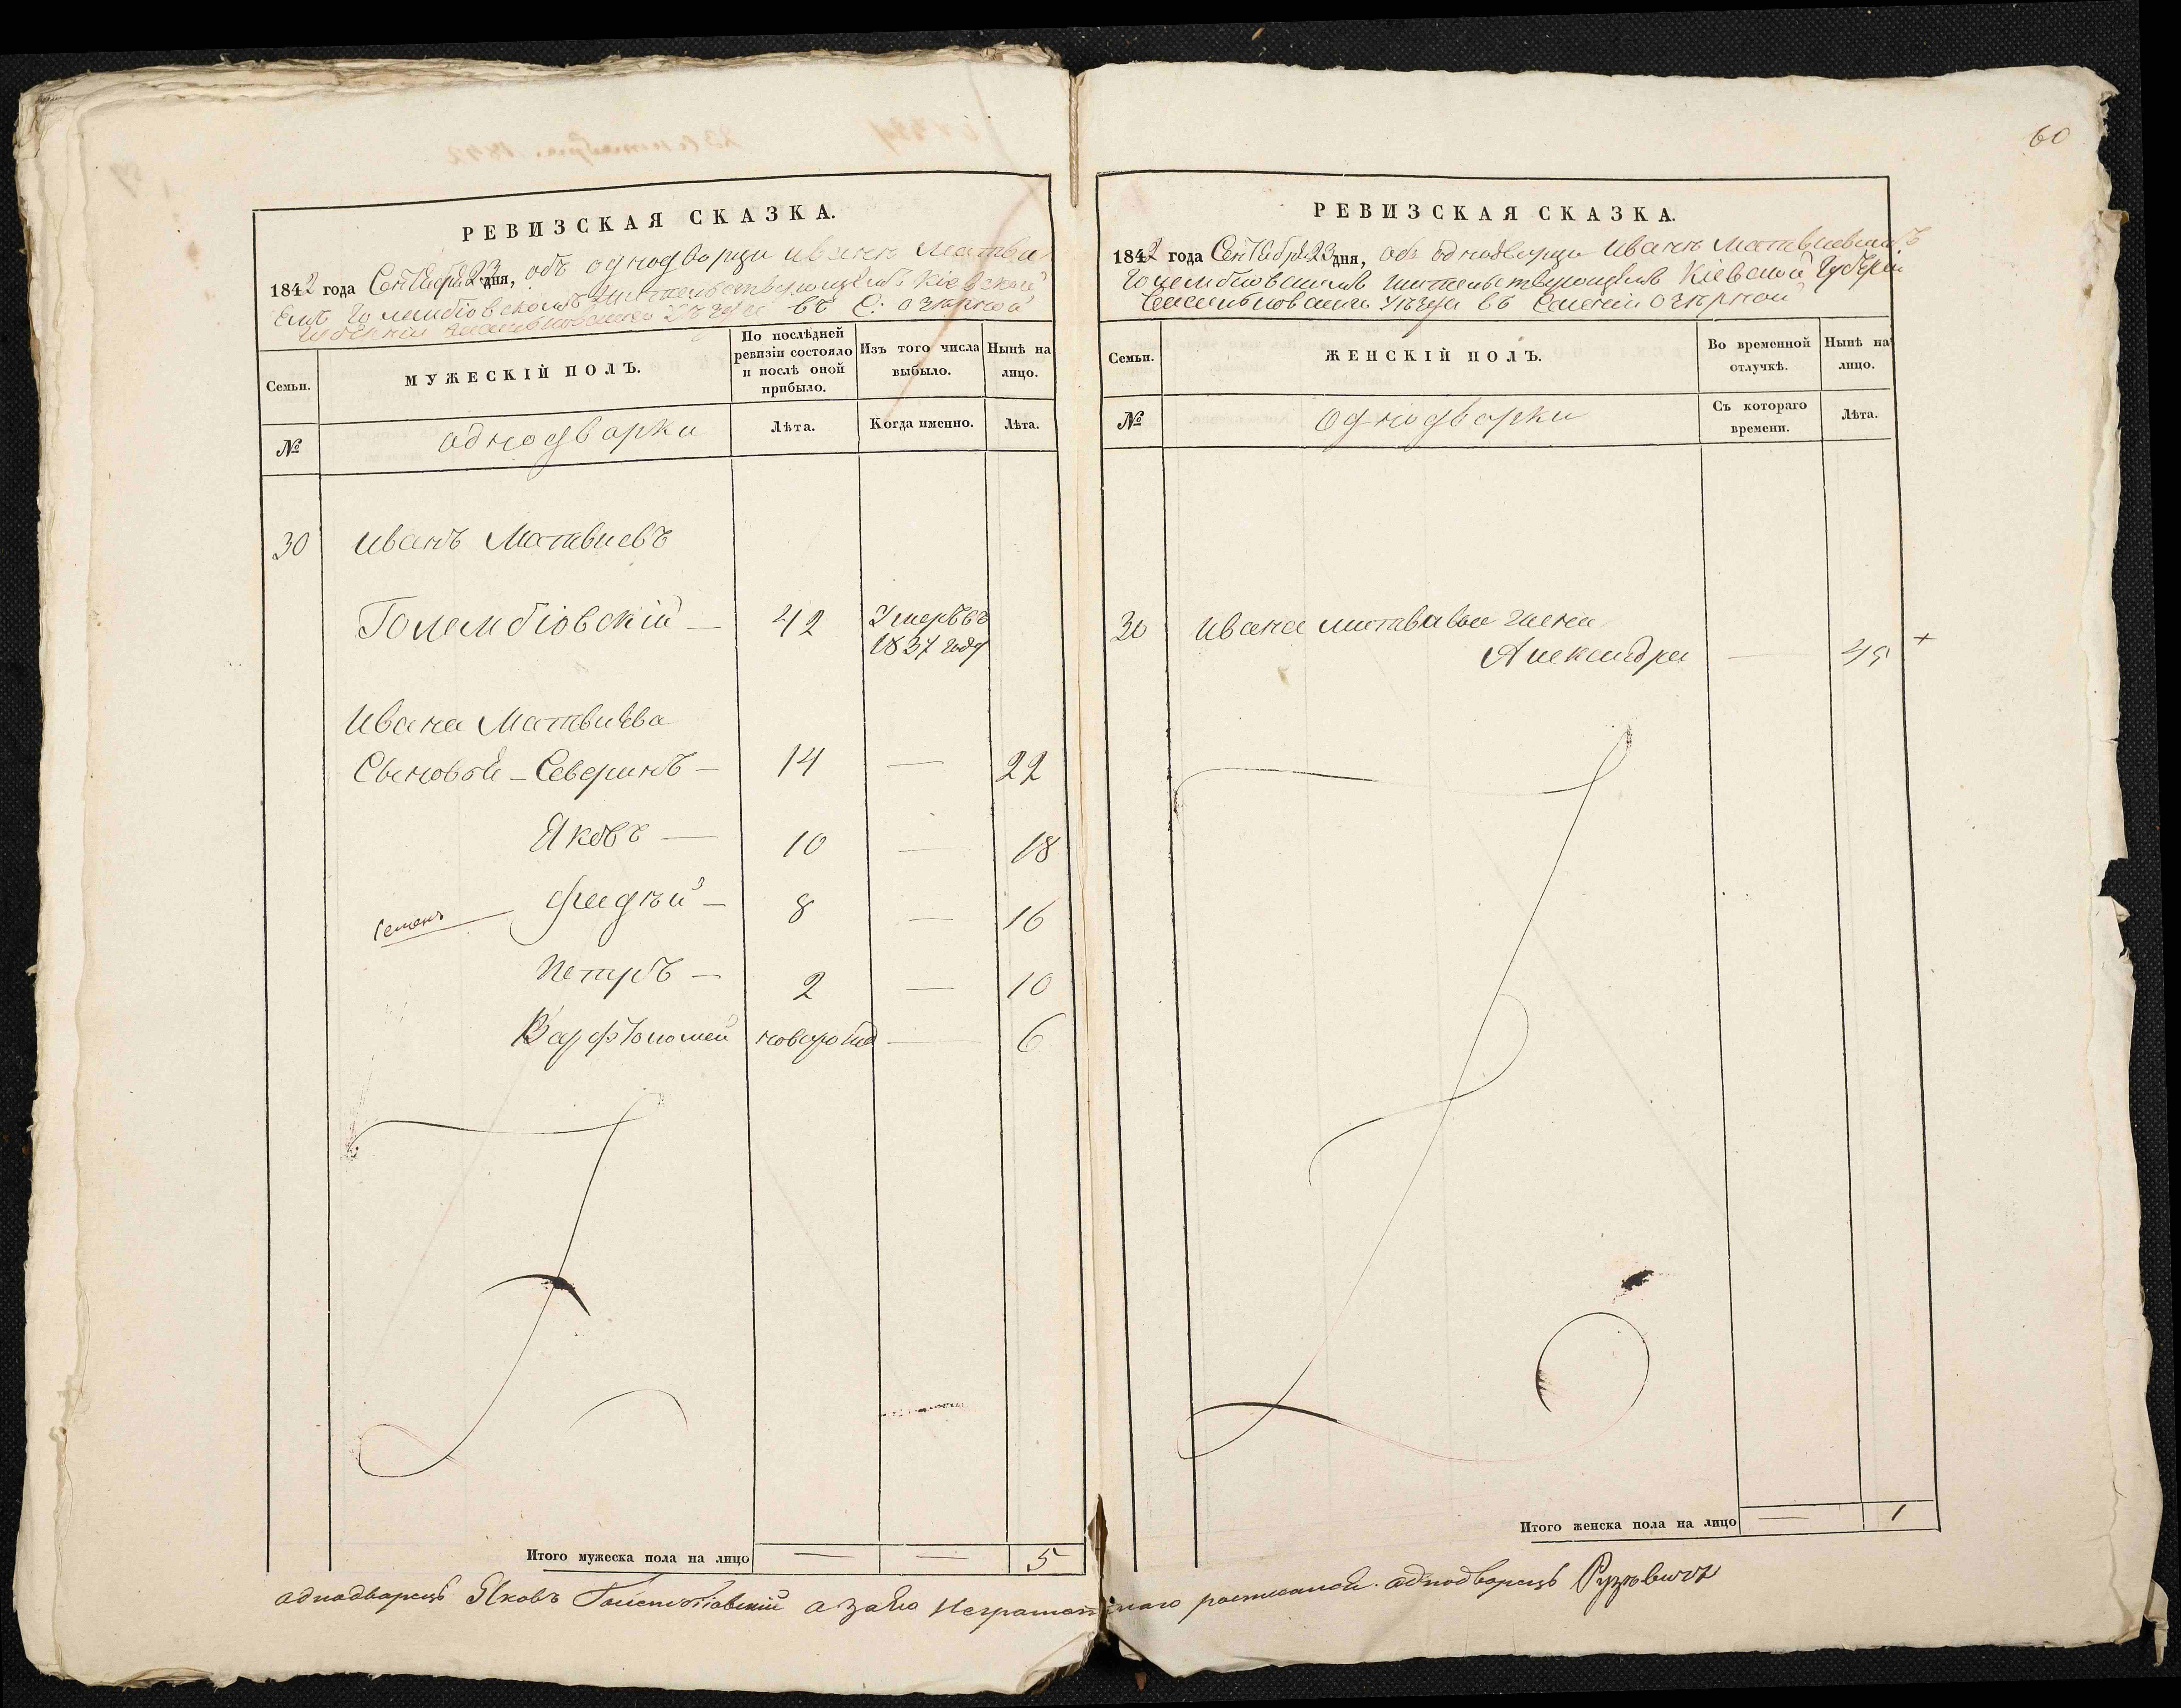 60
РЕВИЗСКАЯ СКАЗКА.
1842 года Сентября 23 дня, объ однодворци Иванѣ Матви
емъ Голембіовскомъ жительствующемъ Кіевской
Губерніи Уѣзда въ С: Озѣрной
Семьи.
МУЖЕСКІЙ ПОЛЪ.
По послѣдней ревизіи состояло и послѣ оной прибыло.
Изъ того числа выбыло.
Нынѣ на лицо.
№
однодворки
Лѣта.
Когда именно.
Лѣта.
30 Иванъ Матвиевъ
Голембіовскій — 42 Умерѣвъ
1837 году
Ивана Матвиѣва
Сыновьй — Северинъ — 14 — 22
Яковъ — 10 — 18
Семенъ — Фадѣй — 8 — 16
Петръ — 2 — 10
Варфѣломей новорожд — 6
Итого мужеска пола на лицо — — 5
РЕВИЗСКАЯ СКАЗКА.
1842 года Сентября 23 дня, объ однодворци Иванѣ Матвиевимъ
Голембіовскимъ жительствующимъ Кіевской Губѣрніи
Уѣзда въ Селеніи Озѣрной
Семьи.
ЖЕНСКІЙ ПОЛЪ.
Во временной отлучкѣ.
Нынѣ на лицо.
№
Однодворки
Съ котораго времени.
Лѣта.
30 Ивана Матвиева жена
Александра — 45 +
Итого женска пола на лицо — 1
аднадворецъ Яковъ Голембіовский а за его Неграмотнаго росписался аднодворецъ